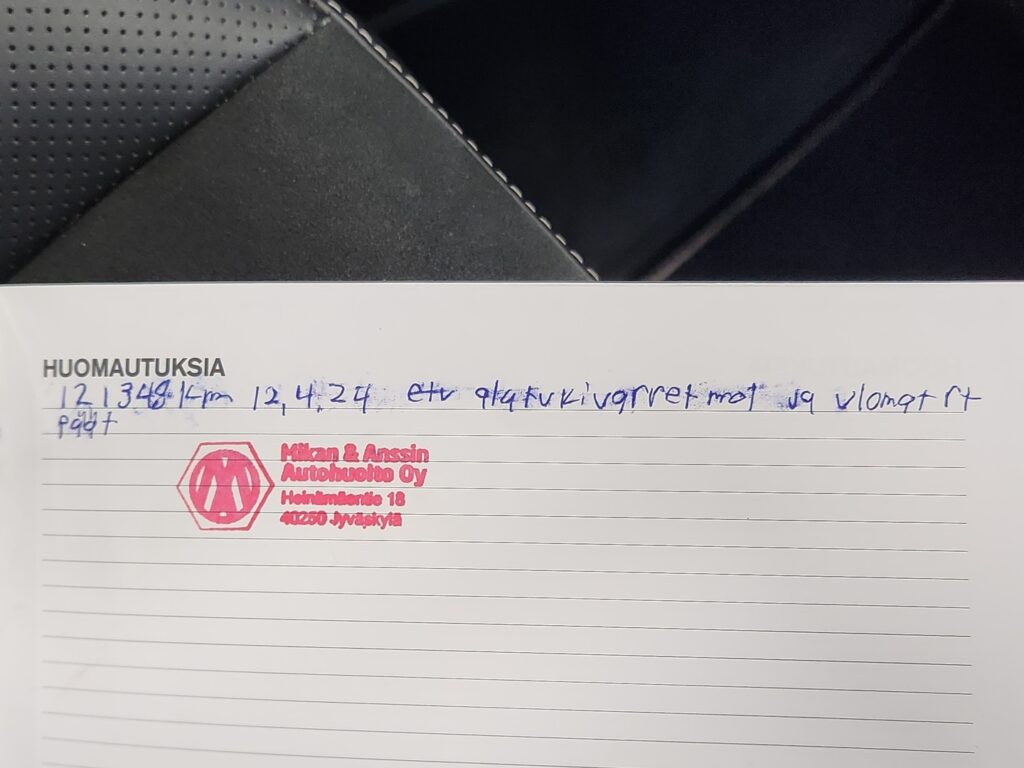 HUOMAUTUKSIA
121348 km 12,4,24 etu alatukivarret mol ja ulomat rt
päät
Mikan & Anssin
Autohuolto Oy
Heinämäentie 18
40250 Jyväskylä